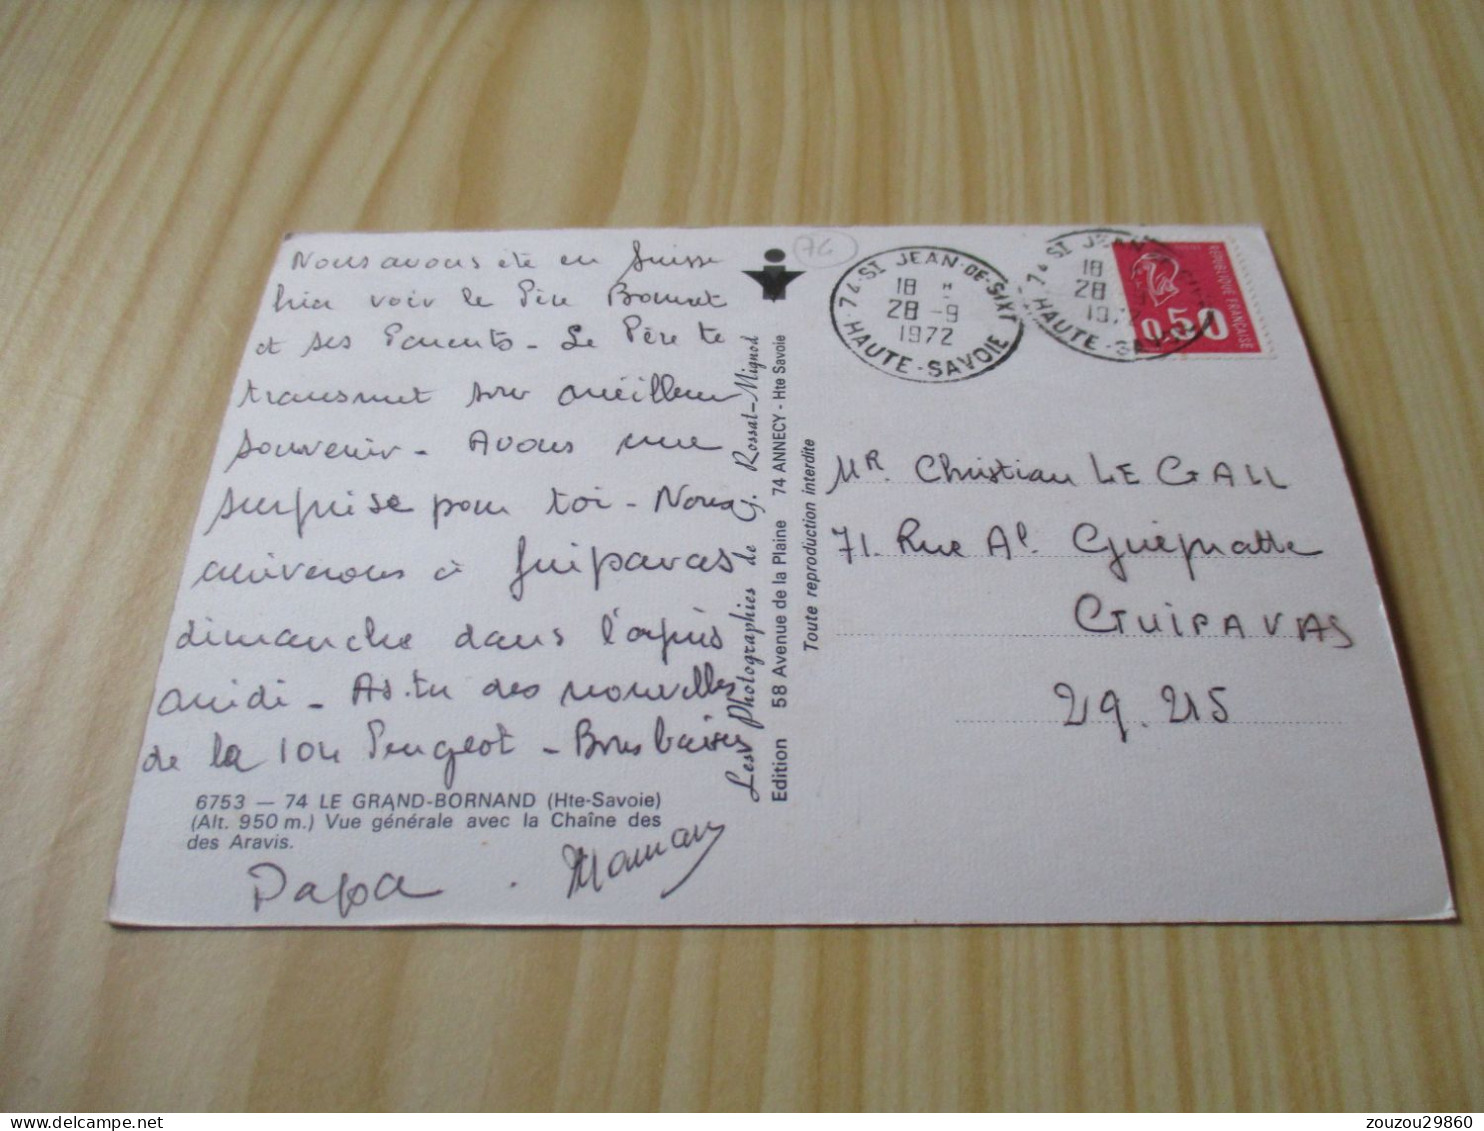 Nous avons été en Suisse
hier voir le Père Bonnet
et ses Parents - Le Père te
transmet son meilleur
souvenir - Avons une
surprise pour toi - Nous
arriverons à Guipavas
dimanche dans l'après
midi - As-tu des nouvelles
de la 104 Peugeot - Bons baisers
6753 — 74 LE GRAND-BORNAND (Hte-Savoie)
(Alt. 950 m.) Vue générale avec la Chaîne des
des Aravis.
Papa . Maman
Les Photographies de G. Rossat-Mignod
Edition 58 Avenue de la Plaine 74 ANNECY - Hte Savoie
Toute reproduction interdite
74
74 ST JEAN-DE-SIXT
18 H
28 -9
1972
HAUTE-SAVOIE
74 ST JEAN
18
28
1972
HAUTE-SAVOIE
REPUBLIQUE FRANÇAISE
0,50
Mr. Christian LE GALL
71. Rue Al. Guépratte
GUIPAVAS
29.215
zouzou29860